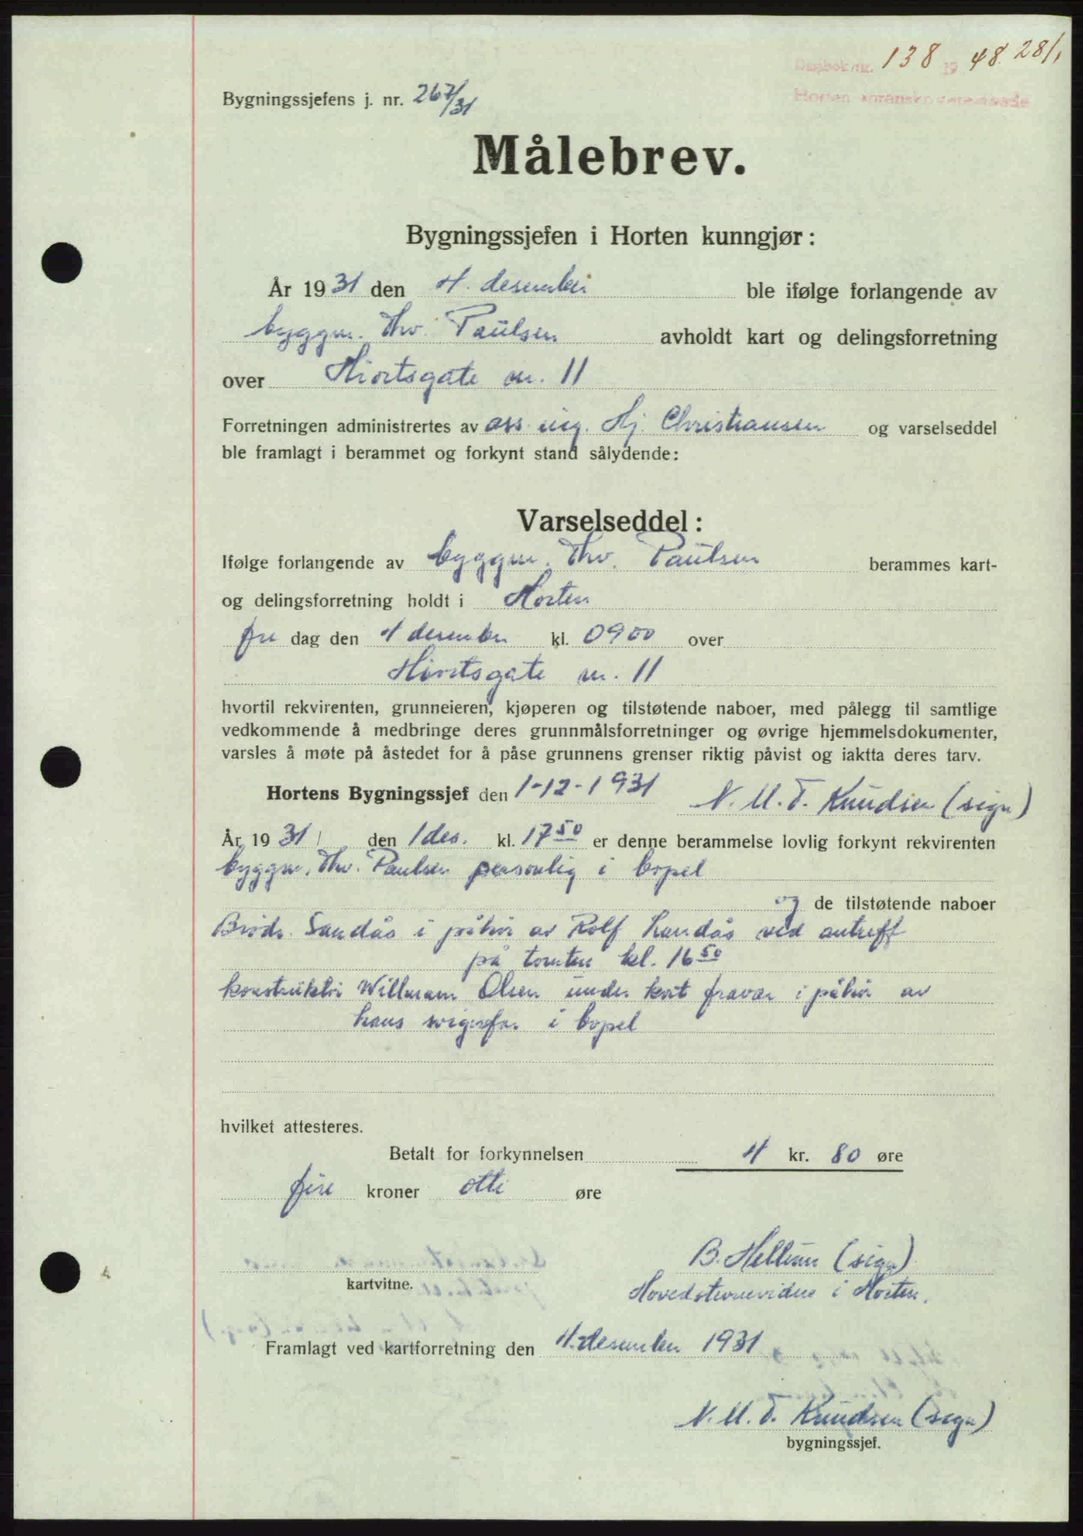 Dagbok nr. 138 19 48. 28/1
Horten sorenskriverembede
Bygningssjefens j. nr. 267/31
Målebrev.
Bygningssjefen i Horten kunngjør:
År 1931 den 4. desember ble ifølge forlangende av
byggm. Thv. Paulsen avholdt kart og delingsforretning
over Hiortsgate nr. 11
Forretningen administrertes av ass. ing. Hj. Christiansen og varselseddel
ble framlagt i berammet og forkynt stand sålydende:
Varselseddel:
Ifølge forlangende av byggm. Thv. Paulsen berammes kart-
og delingsforretning holdt i Horten
fre dag den 4 desember kl. 0900 over
Hiortsgate nr. 11
hvortil rekvirenten, grunneieren, kjøperen og tilstøtende naboer, med pålegg til samtlige
vedkommende å medbringe deres grunnmålsforretninger og øvrige hjemmelsdokumenter,
varsles å møte på åstedet for å påse grunnens grenser riktig påvist og iaktta deres tarv.
Hortens Bygningssjef den 1-12-1931 N. U. T. Knudsen (sign)
År 1931 den 1 des. kl. 17 50 er denne berammelse lovlig forkynt rekvirenten
byggm. Thv. Paulsen personlig i bopel
og de tilstøtende naboer
Brødr. Sandås i påhør av Rolf Sandås ved antreff
på tomten kl. 16 50
konstruktør Willmann Olsen under kort fravær i påhør av
hans svigerfar i bopel
hvilket attesteres.
Betalt for forkynnelsen 4 kr. 80 øre
fire kroner otti øre
B. Hellum (sign)
kartvitne.
Hovedstevnevidne i Horten.
Framlagt ved kartforretning den 4. desember 1931
N. U. T. Knudsen (sign)
bygningssjef.